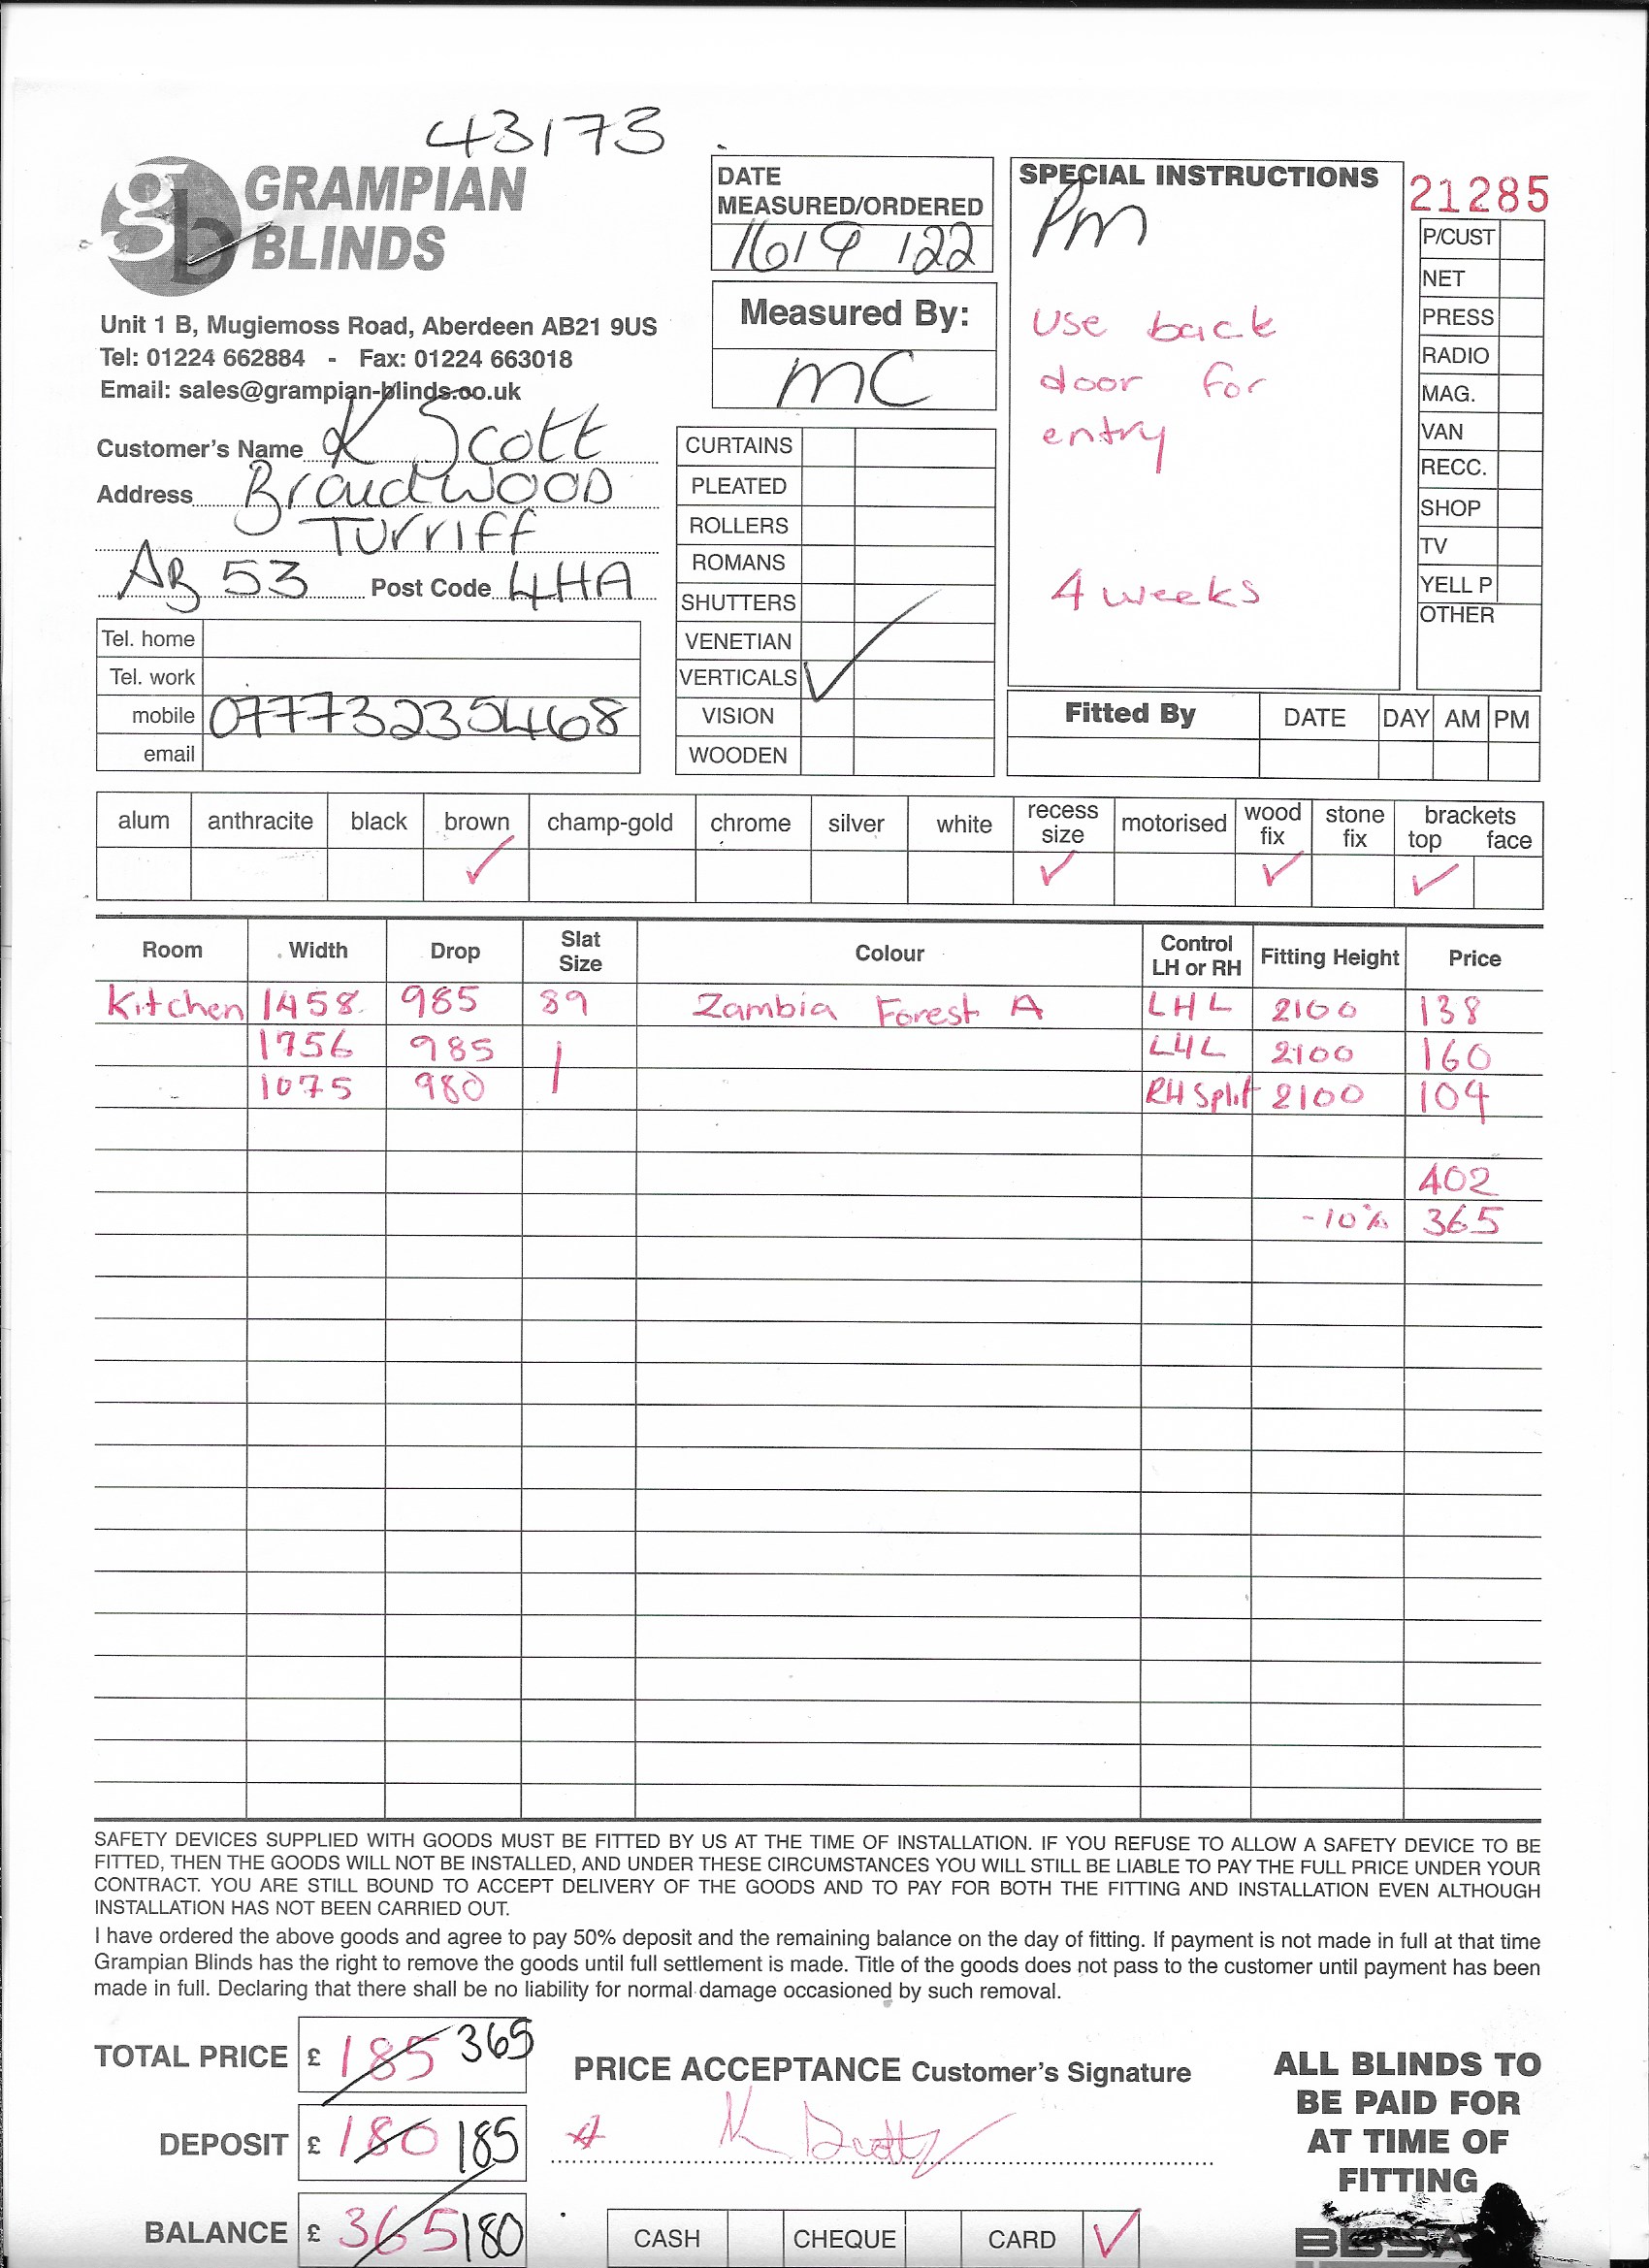 43173
GRAMPIAN
BLINDS
gb
Unit 1 B, Mugiemoss Road, Aberdeen AB21 9US
Tel: 01224 662884 - Fax: 01224 663018
Email: sales@grampian-blinds.co.uk
Customer's Name K Scott
Address Braidwood
Turriff
AB 53 Post Code 4HA
Tel. home
Tel. work
mobile 07773235468
email
DATE
MEASURED/ORDERED
16/9/22
Measured By:
MC
CURTAINS
PLEATED
ROLLERS
ROMANS
SHUTTERS
VENETIAN
VERTICALS ✓
VISION
WOODEN
SPECIAL INSTRUCTIONS
Pm
Use back
door for
entry
4 weeks
21285
P/CUST
NET
PRESS
RADIO
MAG.
VAN
RECC.
SHOP
TV
YELL P
OTHER
Fitted By DATE DAY AM PM
alum anthracite black brown champ-gold chrome silver white recess size motorised wood fix stone fix brackets top face
✓ ✓ ✓ ✓
Room Width Drop Slat Size Colour Control LH or RH Fitting Height Price
Kitchen 1458 985 89 Zambia Forest A LHL 2100 138
1756 985 | LHL 2100 160
1075 980 RH Split 2100 104
402
-10% 365
SAFETY DEVICES SUPPLIED WITH GOODS MUST BE FITTED BY US AT THE TIME OF INSTALLATION. IF YOU REFUSE TO ALLOW A SAFETY DEVICE TO BE
FITTED, THEN THE GOODS WILL NOT BE INSTALLED, AND UNDER THESE CIRCUMSTANCES YOU WILL STILL BE LIABLE TO PAY THE FULL PRICE UNDER YOUR
CONTRACT. YOU ARE STILL BOUND TO ACCEPT DELIVERY OF THE GOODS AND TO PAY FOR BOTH THE FITTING AND INSTALLATION EVEN ALTHOUGH
INSTALLATION HAS NOT BEEN CARRIED OUT.
I have ordered the above goods and agree to pay 50% deposit and the remaining balance on the day of fitting. If payment is not made in full at that time
Grampian Blinds has the right to remove the goods until full settlement is made. Title of the goods does not pass to the customer until payment has been
made in full. Declaring that there shall be no liability for normal damage occasioned by such removal.
TOTAL PRICE £ 185 365
DEPOSIT £ 180 185
BALANCE £ 365 180
PRICE ACCEPTANCE Customer's Signature
K Scott
CASH CHEQUE CARD ✓
ALL BLINDS TO
BE PAID FOR
AT TIME OF
FITTING